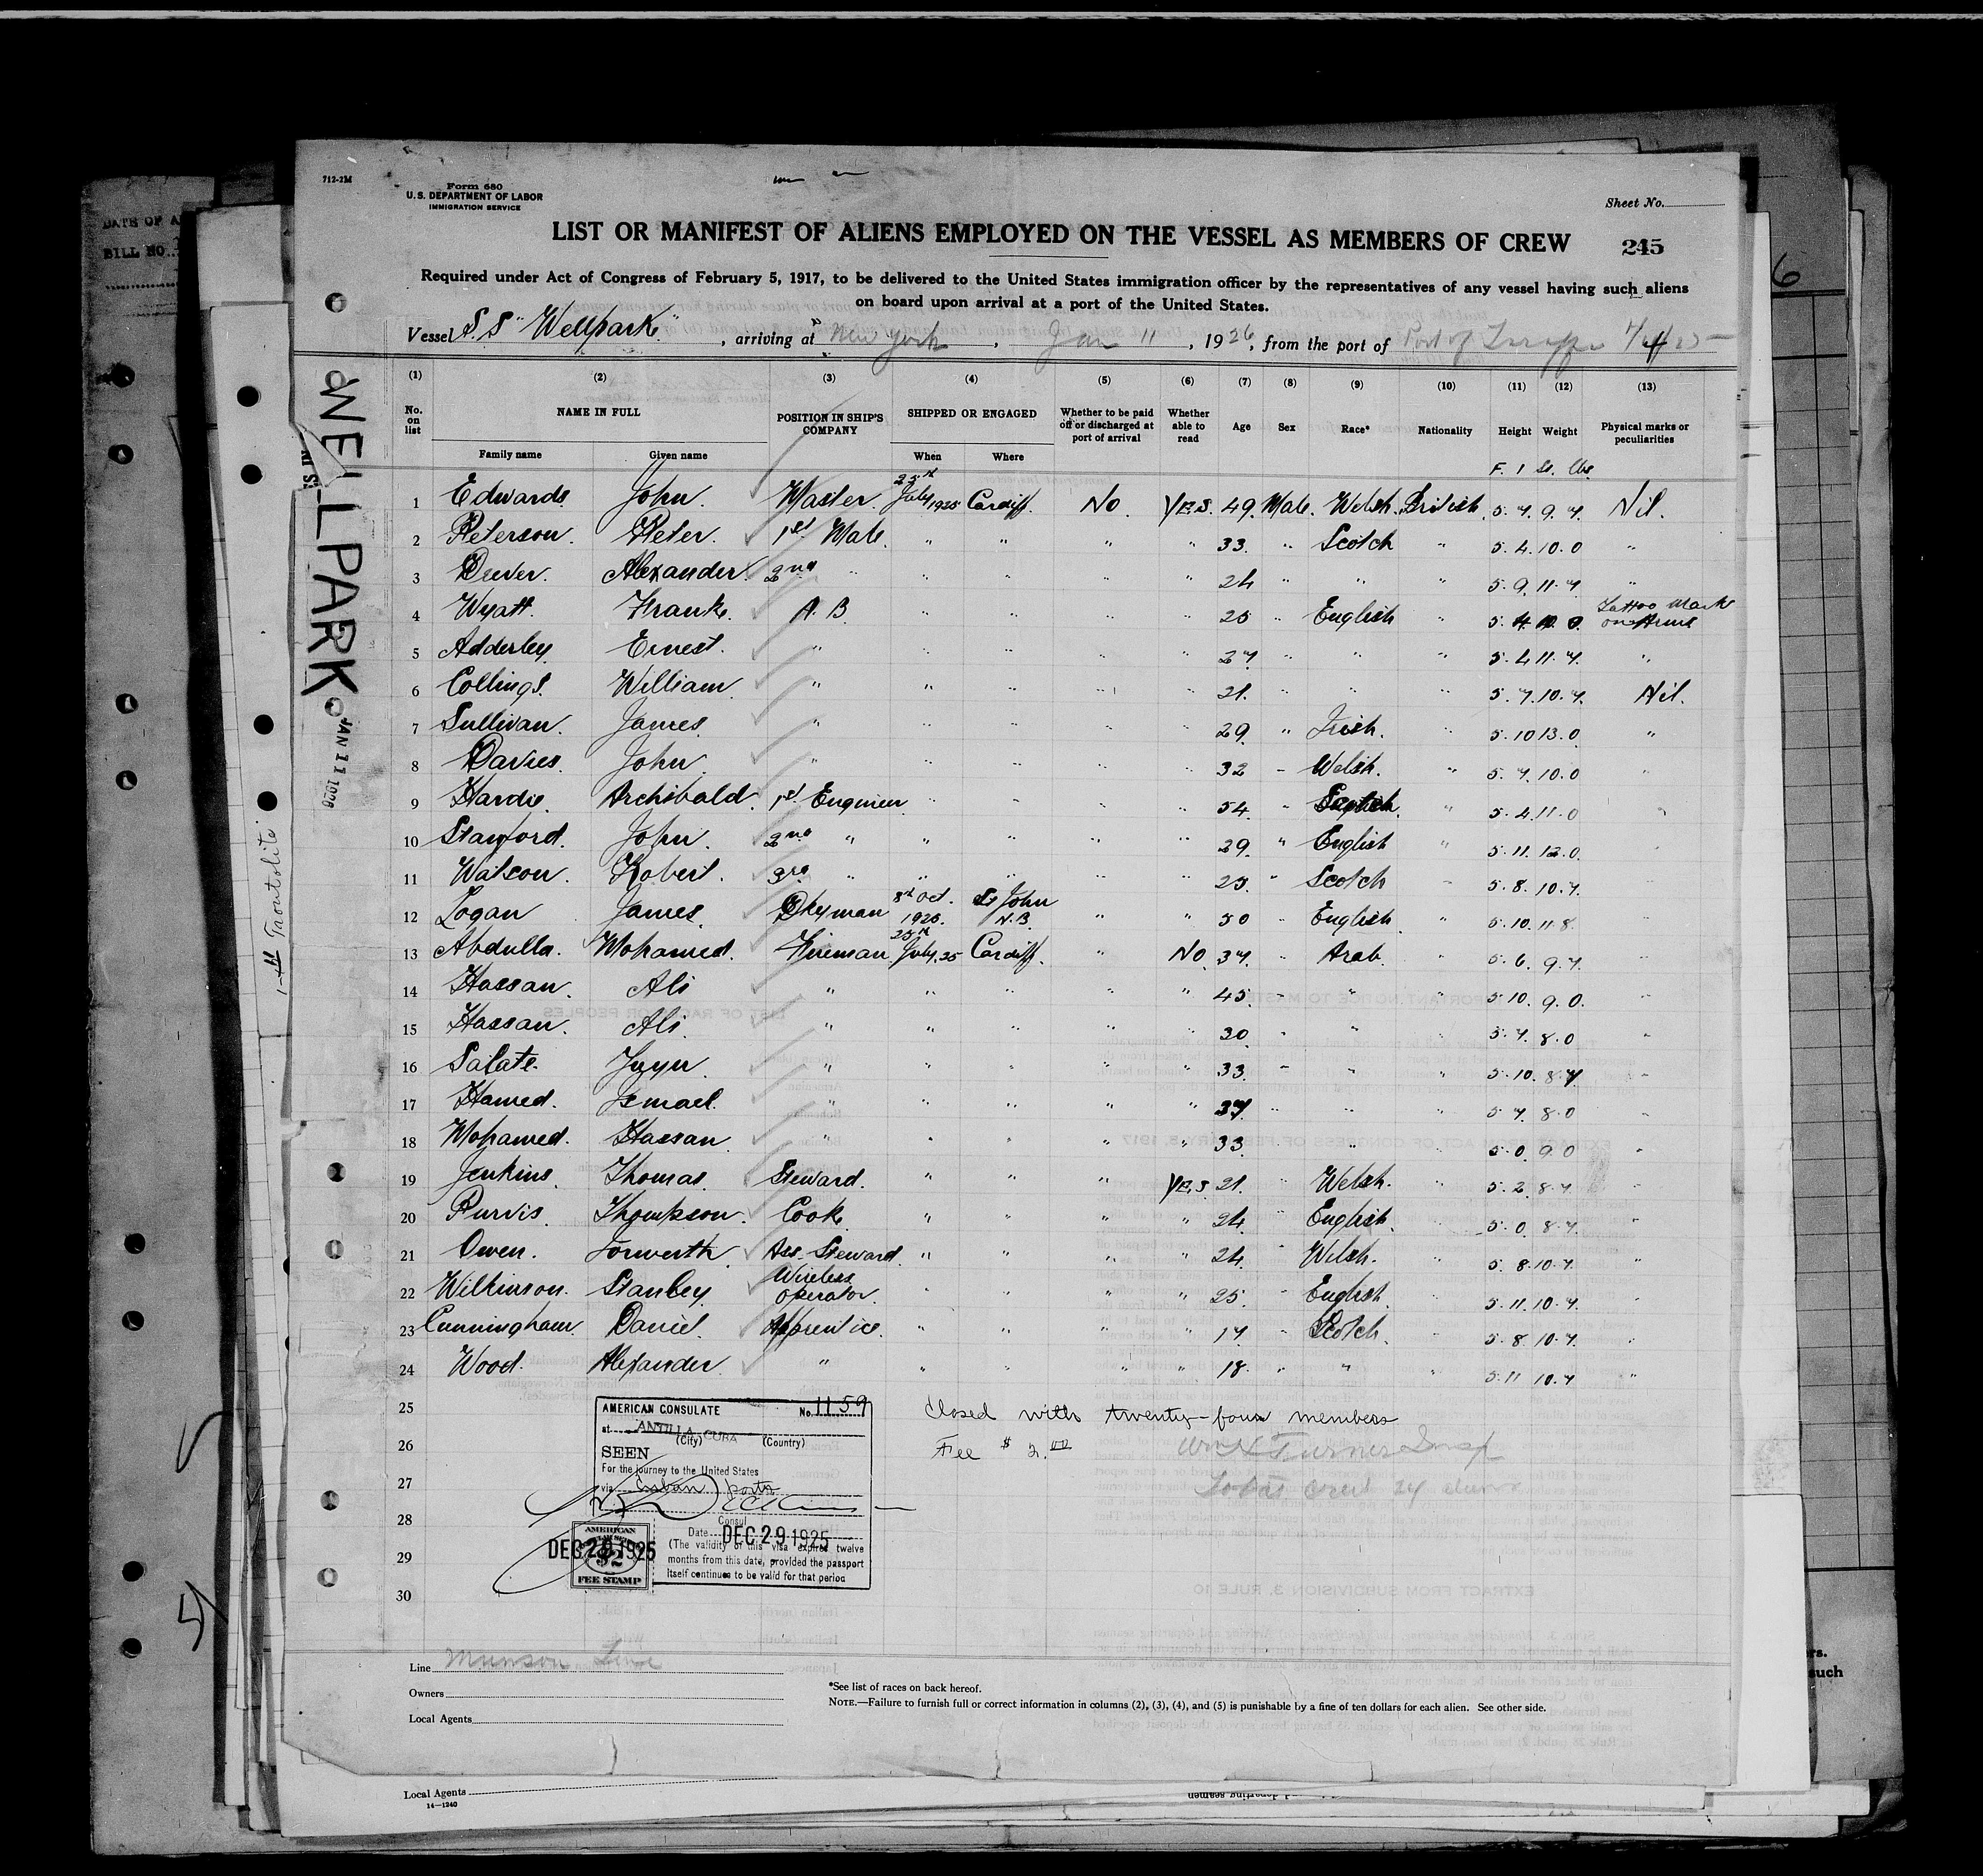 712-2M
Form 680
U.S. DEPARTMENT OF LABOR
IMMIGRATION SERVICE
Sheet No.
LIST OR MANIFEST OF ALIENS EMPLOYED ON THE VESSEL AS MEMBERS OF CREW 245
Required under Act of Congress of February 5, 1917, to be delivered to the United States immigration officer by the representatives of any vessel having such aliens
on board upon arrival at a port of the United States.
Vessel S.S "Wellpark", arriving at New York, Jan 11, 1926, from the port of Port of
(1) (2) (3) (4) (5) (6) (7) (8) (9) (10) (11) (12) (13)
No. on list NAME IN FULL POSITION IN SHIP'S COMPANY SHIPPED OR ENGAGED Whether to be paid off or discharged at port of arrival Whether able to read Age Sex Race* Nationality Height Weight Physical marks or peculiarities
Family name Given name When Where
F. I St. Lbs.
1 Edwards. John. Master. 25th July 1925 Cardiff. No. YES. 49. Male. Welsh. British. 5.7. 9.7. Nil.
2 Peterson. Peter. 1st Mate. " " " " 33. " Scotch " 5.4. 10.0 "
3 Alexander. 2nd " " " " " 24 " " " 5.9. 11.7 "
4 Wyatt. Frank. A.B. " " " " 25 " English " 5.4 10.0. Tattoo Mark on Arms
5 Adderley. Ernest. " " " " " 27 " " " 5.4 11.7. "
6 Collings. William. " " " " " 21. " " " 5.7. 10.7. Nil.
7 Sullivan. James. " " " " " 29. " Irish. " 5.10 13.0 "
8 Davies. John. " " " " " 32 " Welsh. " 5.7. 10.0 "
9 Hardie. Archibald. 1st Engineer. " " " " 54. " Scotch. " 5.4. 11.0 "
10 John. 2nd " " " " " 29. " English " 5.11. 12.0. "
11 Watson. Robert. 3rd " " " " " 25. " Scotch " 5.8. 10.7. "
12 Logan James. Dkyman 8th Oct. 1925. St John N.B. " " 50 " English. " 5.10. 11.8 "
13 Abdulla. Mohamed. Fireman. 25th July. 25 Cardiff. " No. 37. " Arab. " 5.6. 9.7. "
14 Hassan. Ali " " " " " 45. " " " 5.10. 9.0. "
15 Hassan. Ali. " " " " " 30. " " " 5.7. 8.0 "
16 Salate. " " " " " 33. " " " 5.10. 8.7 "
17 Hamed. Ismael. " " " " " 37. " " " 5.7. 8.0 "
18 Mohamed. Hassan. " " " " " 33. " " " 5.0. 9.0 "
19 Jenkins. Thomas. Steward. " " " YES. 21. " Welsh. " 5.2. 8.7 "
20 Purvis. Thompson. Cook. " " " " 24. " English. " 5.0. 8.7. "
21 Owen. Iorwerth. Ass. Steward. " " " " 24. " Welsh. " 5.8. 10.7. "
22 Wilkinson. Stanley. Wireless Operator. " " " " 25. " English. " 5.11. 10.7. "
23 Cunningham. Daniel. Apprentice. " " " " 17 " Scotch. " 5.8. 10.7. "
24 Wood. Alexander. " " " " " 18. " " " 5.11 10.7 "
25
26
27
28
29
30
Closed with twenty-four members
Fee $2.00
Wm H Turner Insp
AMERICAN CONSULATE No. 1159
at ANTILLA, CUBA
(City) (Country)
SEEN
For the journey to the United States
via Cuban ports
Consul
Date DEC 29 1925
(The validity of this visa expires twelve
months from this date, provided the passport
itself continues to be valid for that period
AMERICAN
$2
FEE STAMP
DEC 29 1925
Line Munson Line
Owners
Local Agents
*See list of races on back hereof.
NOTE.—Failure to furnish full or correct information in columns (2), (3), (4), and (5) is punishable by a fine of ten dollars for each alien. See other side.
Local Agents
14—1240
WELLPARK
JAN 11 1926
BILL NO.
such